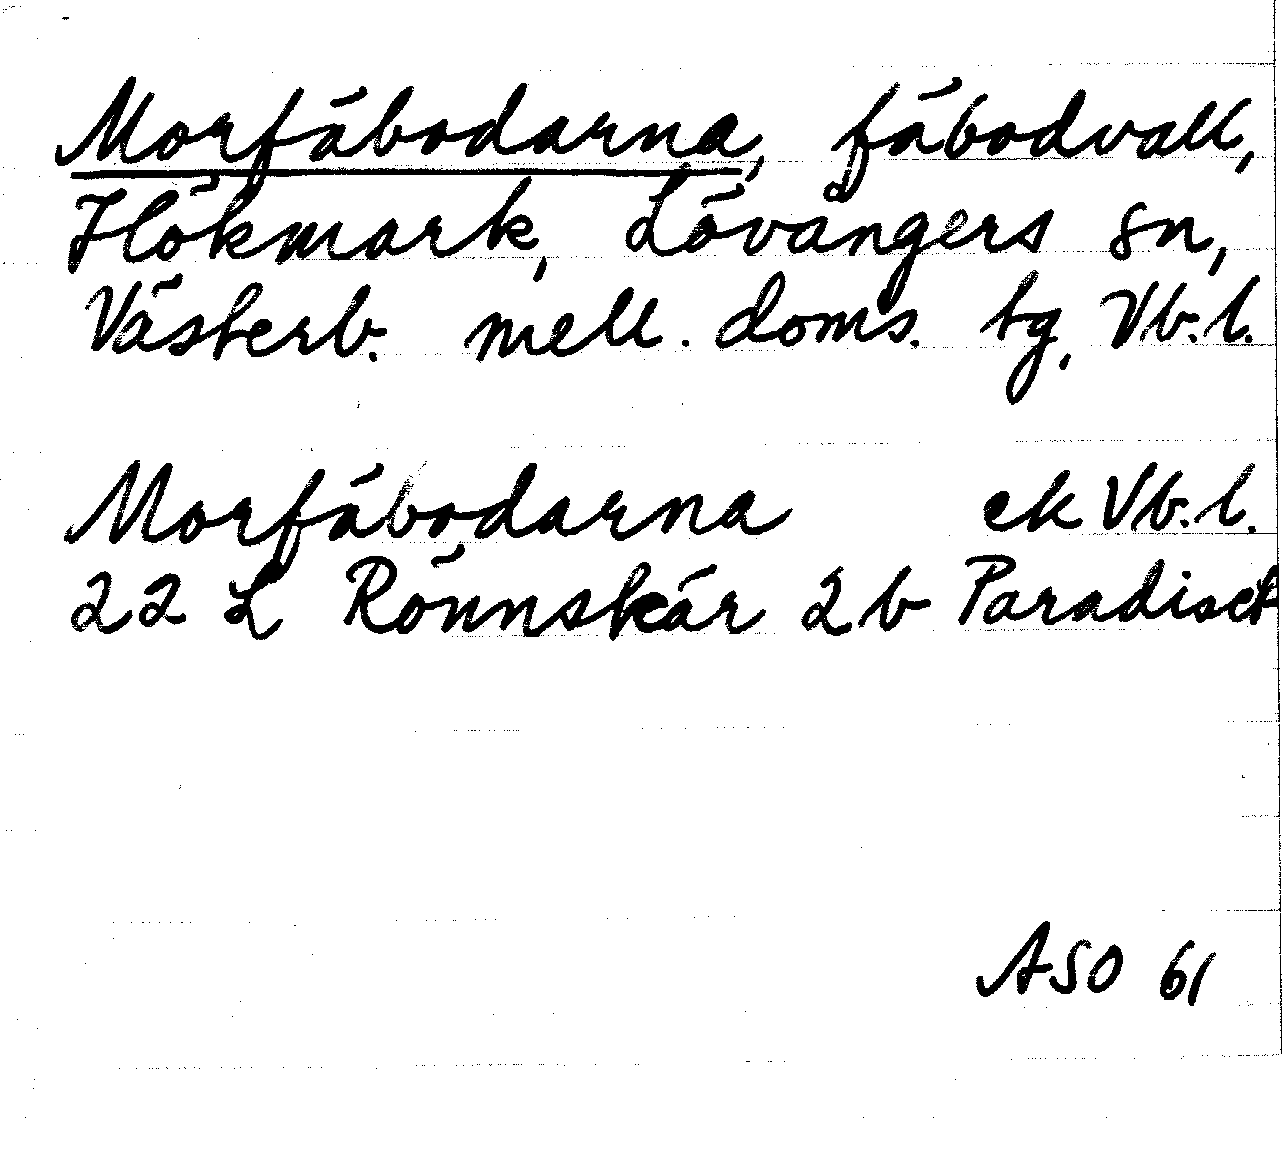 Morfäbodarna, fäbodvall,
Hökmark, Lövångers sn,
Västerb. mell. doms. tg, Vb.l.
Morfäbodarna ek Vb.l.
22 L Rönnskär 2 b Paradiset
ASO 61